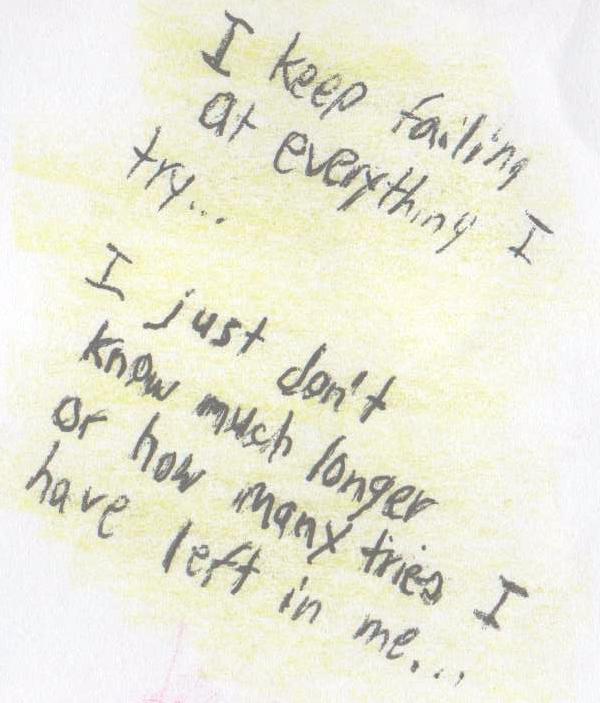 I keep failing
at everything I
try...
I just don't
know much longer
or how many tries I
have left in me...